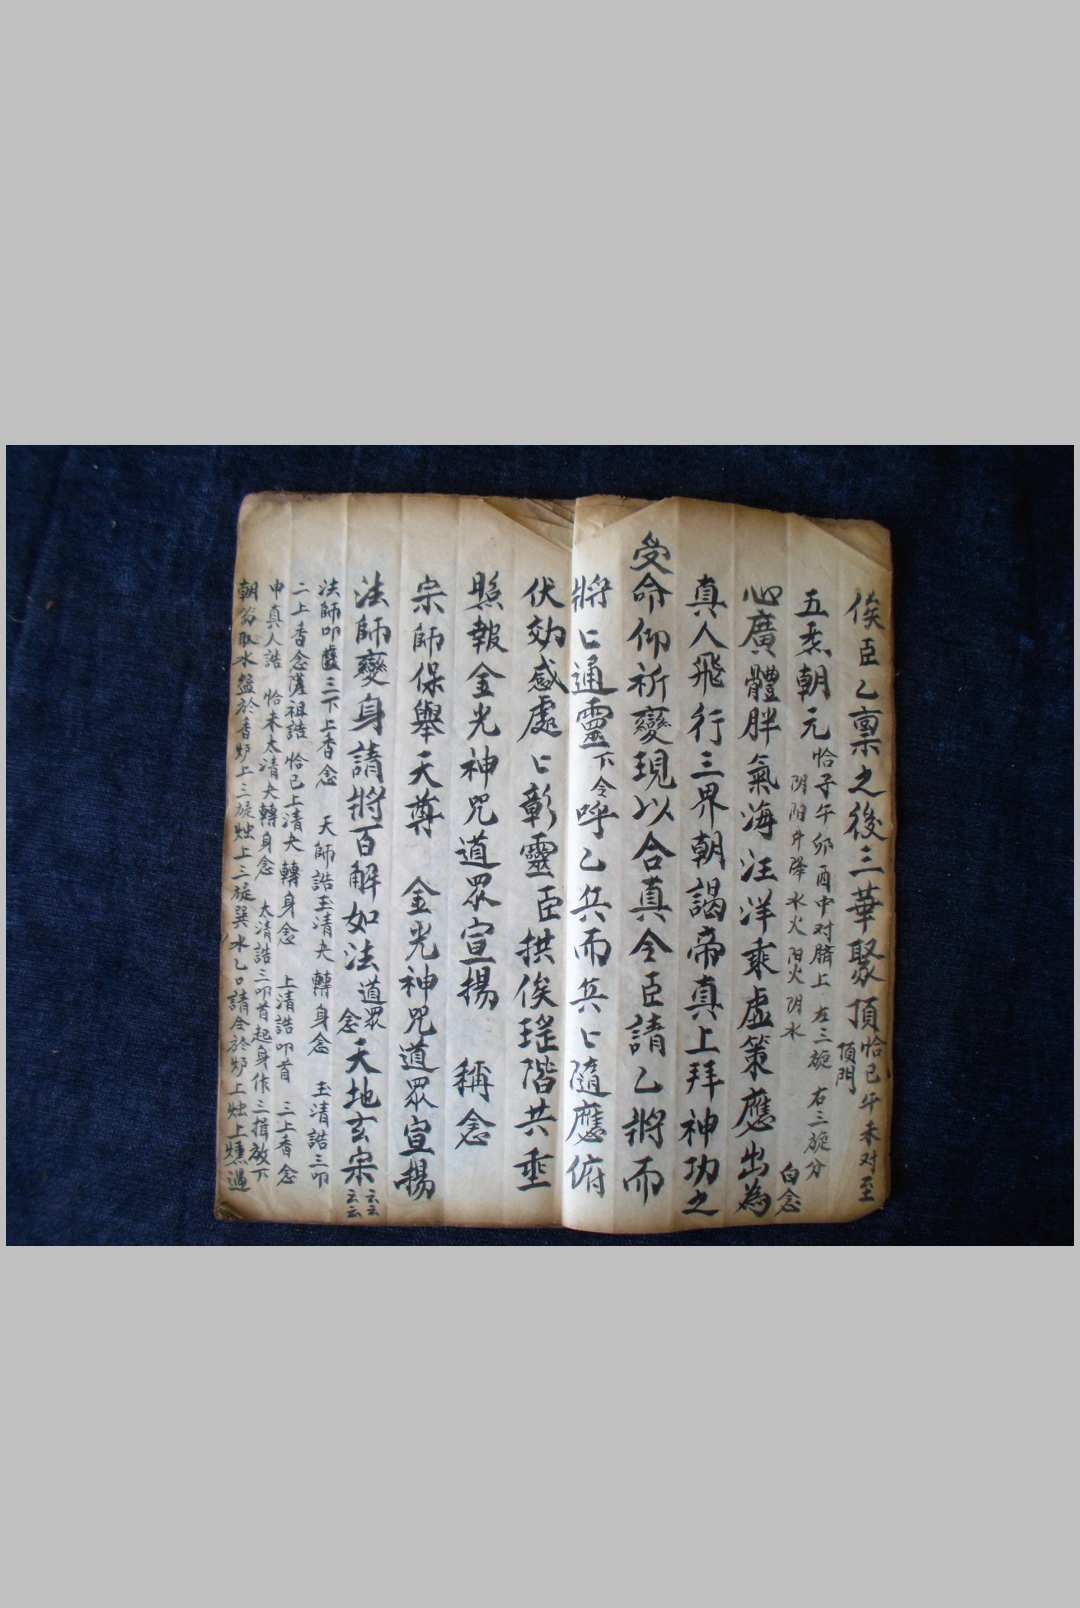 俟臣乙禀之後三華聚頂恰巳午未对至頂門
五炁朝元恰子午卯酉中对臍上 左三旋 右三旋分
阴阳升降水火阳火阴水 白念
心廣體胖氣海汪洋乘虛策應出為
真人飛行三界朝謁帝真上拜神功之
受命仰祈變現以合真令臣請乙將而
將匕通靈下令呼乙兵而兵匕隨應俯
伏効感處匕彰靈臣拱俟瑤階共垂
照報金光神咒道眾宣揚 稱念
宗師保舉天尊 金光神咒道眾宣揚
法師變身請將百解如法道眾念天地玄宗云云云云
法師叩齒三下上香念 天師誥玉清夬轉身念 玉清誥三叩
二上香念薩祖誥恰巳上清夬轉身念 上清誥叩首 三上香念
申真人誥 恰未太清夬轉身念 太清誥三叩首起身作三揖放下
朝笏取水盆於香炉上三旋烛上三旋巽水乙口請令於炉上烛上燻過